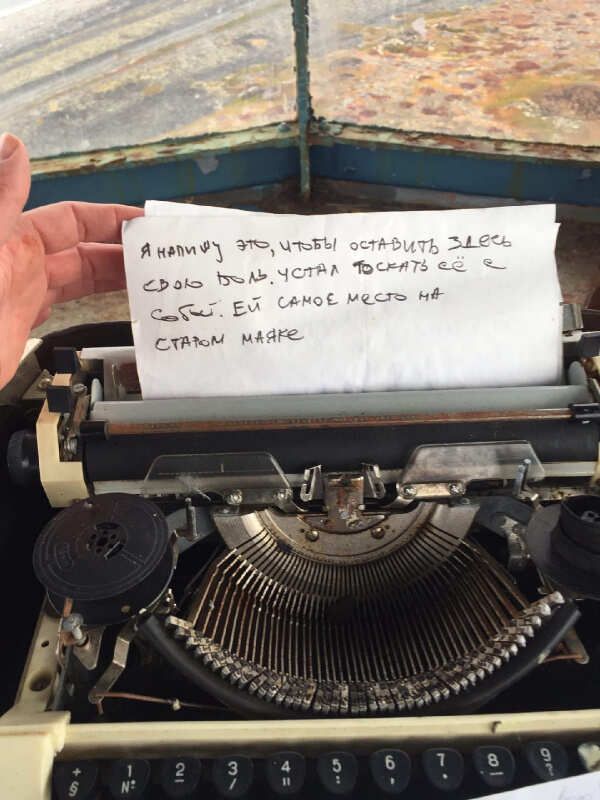 Я НАПИШУ ЭТО, ЧТОБЫ ОСТАВИТЬ ЗДЕСЬ
СВОЮ БОЛЬ. УСТАЛ ТОСКАТЬ ЕЁ С
СОБОЙ. ЕЙ САМОЕ МЕСТО НА
СТАРОМ МАЯКЕ
+ 1 2 3 4 5 6 7 8 9
§ № - / " : , . _ ?